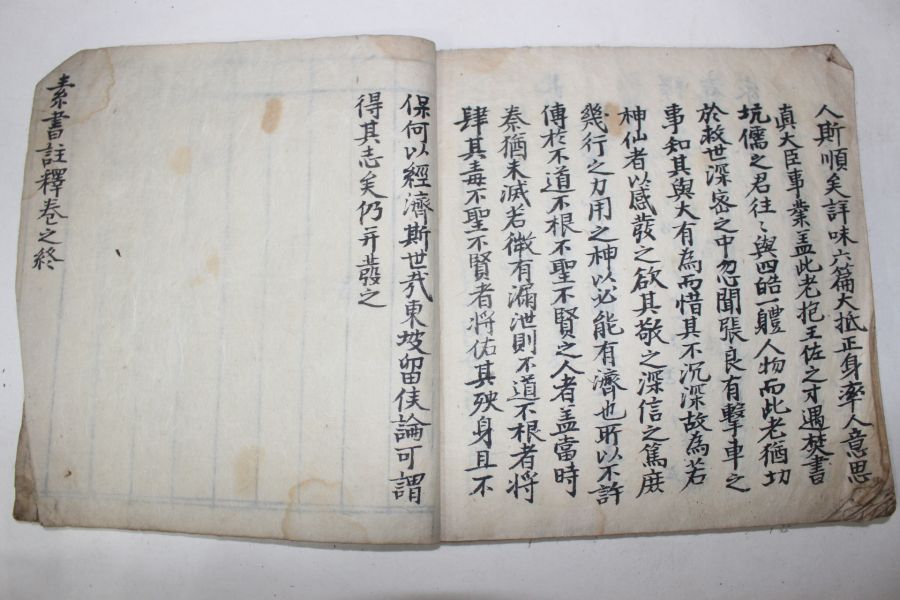 人斯順矣詳味六篇大抵正身率人意思
真大臣事業盖此老抱王佐之才遇焚書
坑儒之君往〻與四皓一軆人物而此老猶切
於救世深密之中忽聞張良有擊車之
事知其與大有為而惜其不沉深故為若
神仙者以感發之欲其敬之深信之篤庶
幾行之力用之神以必能有濟也所以不許
傳於不道不根不聖不賢之人者盖當時
秦猶未滅若微有漏泄則不道不根者將
肆其毒不聖不賢者將佑其殃身且不
保何以經濟斯世㢤東坡留侯論可謂
得其志矣仍并發之
素書註釋卷之終